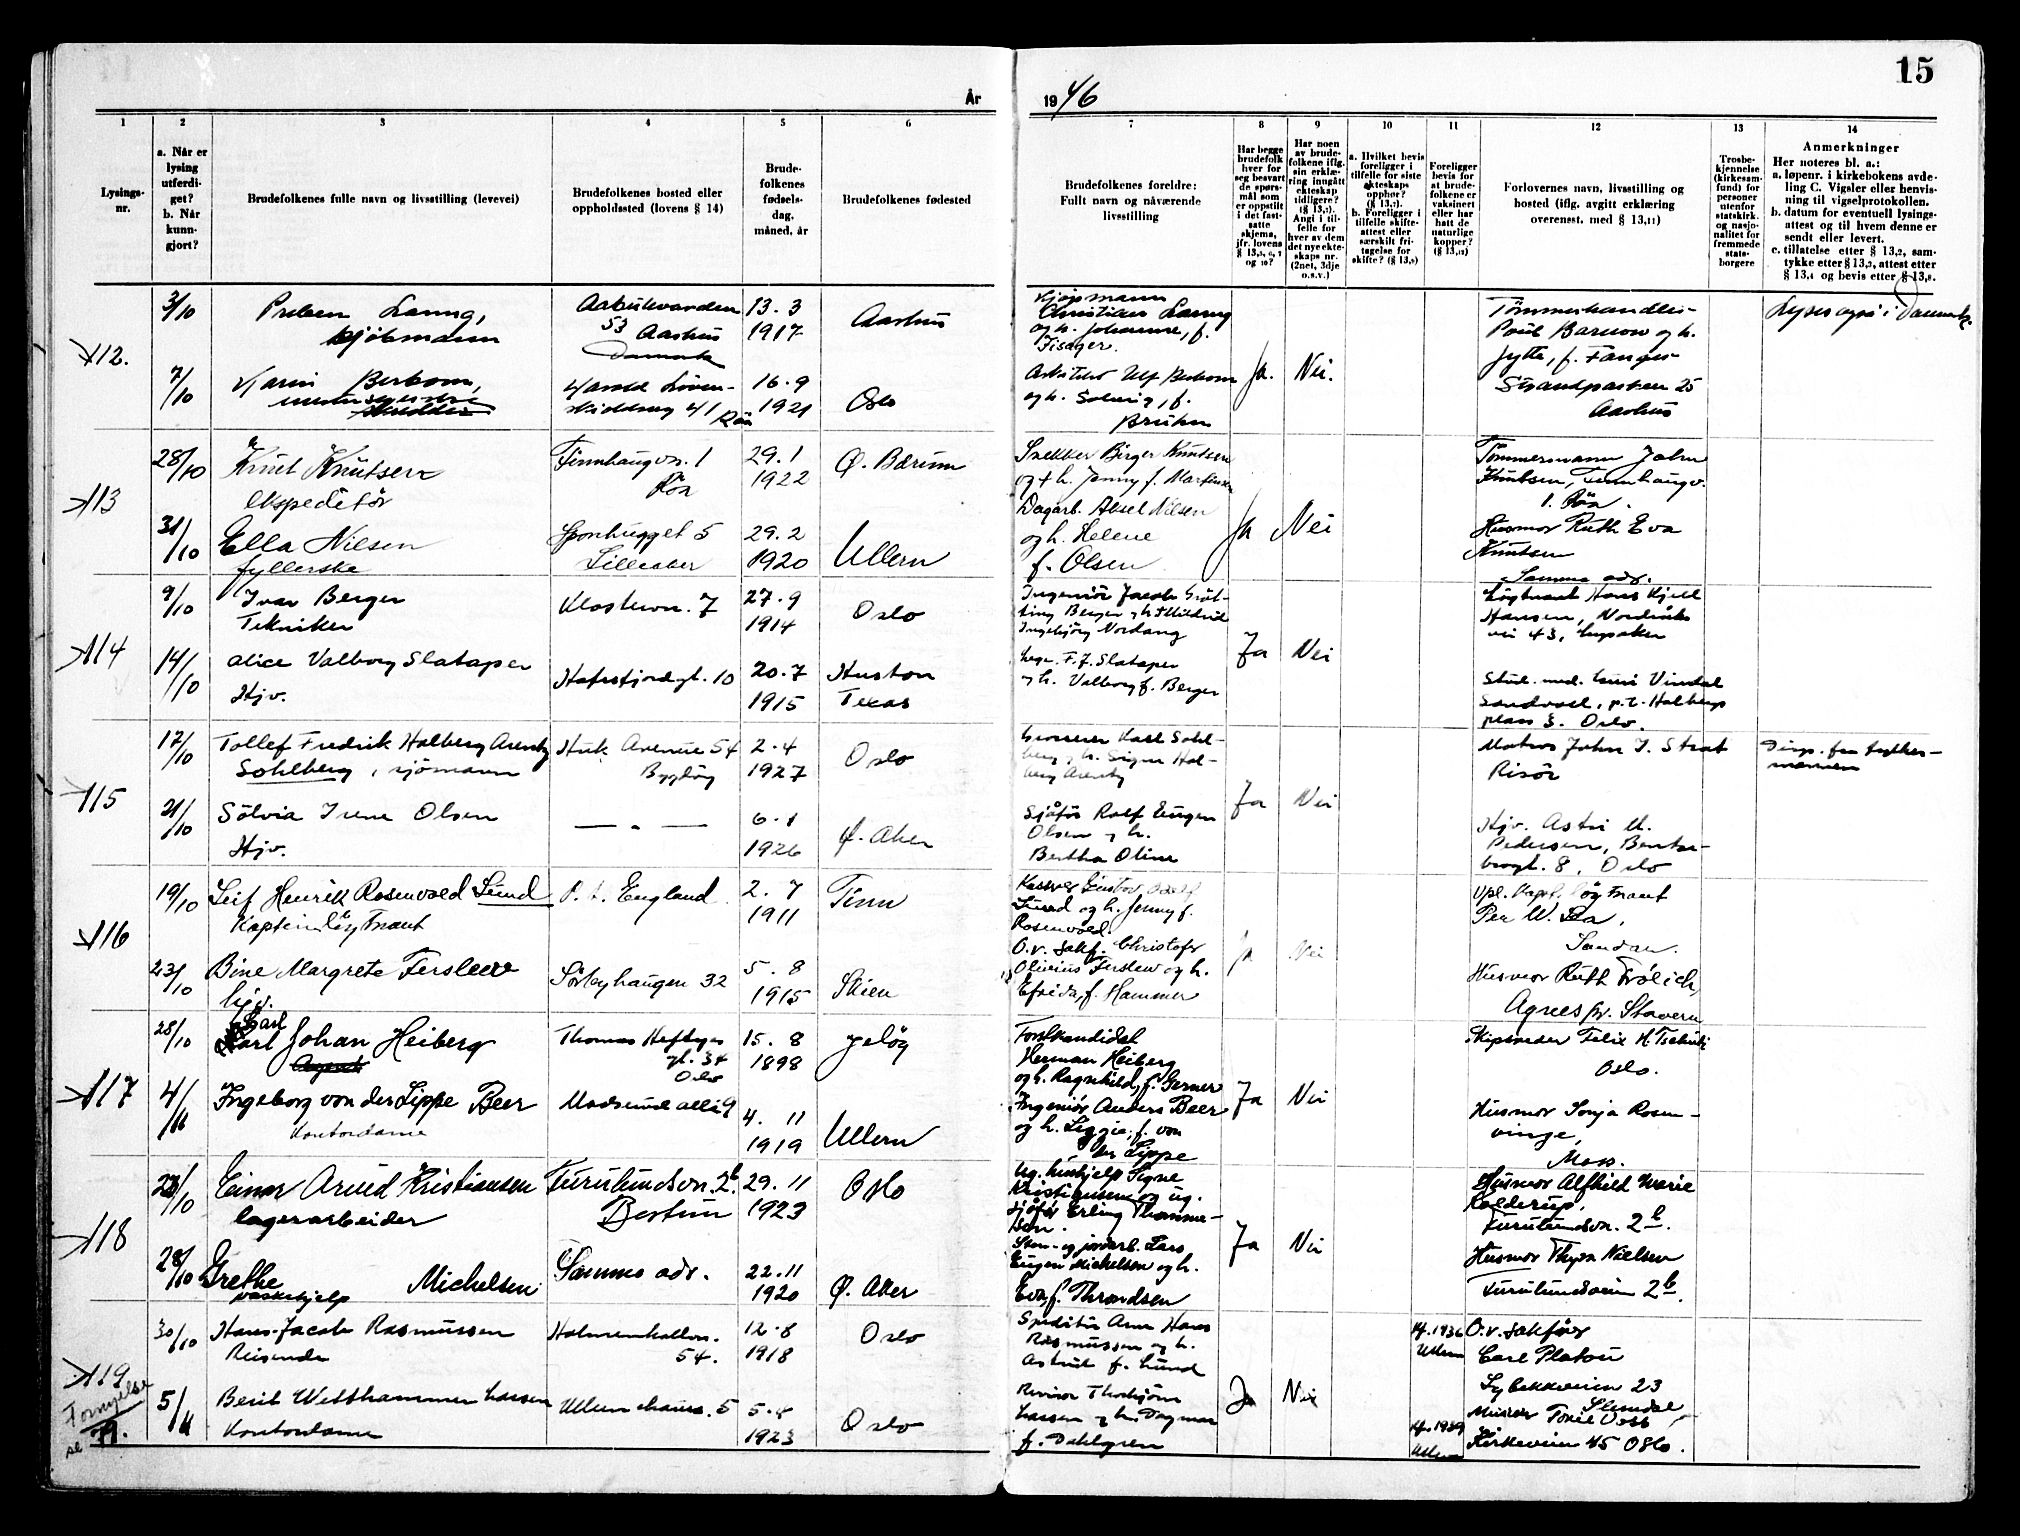 15
År
19 46
1 2 3 4 5 6 7 8 9 10 11 12 13 14
Lysings-
nr.
a. Når er
lysing
utferdi-
get?
b. Når
kunn-
gjort?
Brudefolkenes fulle navn og livsstilling (levevei)
Brudefolkenes bosted eller
oppholdssted (lovens § 14)
Brude-
folkenes
fødsels-
dag,
måned, år
Brudefolkenes fødested
Brudefolkenes foreldre:
Fullt navn og nåværende
livsstilling
Har begge
brudefolk
hver for
seg besvart
de spørs-
mål som
er oppstilt
i det fast-
satte
skjema,
jfr. lovens
Har noen
av brude-
folkene iflg.
sin erklæ-
ring inngått
ekteskap
tidligere?
Angi i til-
felle for
hver av dem
det nye ekte-
skaps nr.
(2net, 3dje
o.s.v.)
a. Hvilket bevis
foreligger i
tilfelle for siste
ekteskaps
opphør?
b. Foreligger i
tilfelle skifte-
attest eller
særskilt fri-
tagelse for
skifte?
Foreligger
bevis for
at brude-
folkene er
vaksinert
eller har
hatt de
naturlige
kopper?
Forlovernes navn, livsstilling og
bosted (iflg. avgitt erklæring
overenst. med § 13,11)
Trosbe-
kjennelse
(kirkesam-
fund) for
personer
utenfor
statskirk.
og nasjo-
nalitet for
fremmede
stats-
borgere
Anmerkninger
Her noteres bl. a.:
a. løpenr. i kirkebokens avde-
ling C. Vigsler eller henvis-
ning til vigselprotokollen.
b. datum for eventuell lysings-
attest og til hvem denne er
sendt eller levert.
c. tillatelse etter § 13,2, sam-
tykke etter § 13,3, attest etter
§ 13,4 og bevis etter § 13,8.
112.
3/10 Preben Lanng, 13.3 Aarhus
kjøbmann 53 Aarhus 1917
Danmark
Kjøpmann
Christian Lanng
og h. Johanne, f.
Fisager.
Tømmerhandler
Poul Barnow og h.
Jytte, f. Fanger
Strandparken 25
Aarhus
Lyses også i Danmark.
7/10 Karin Berbom, Harald Løven- 16.9 Oslo
skioldsveg 41 Röa 1921
Arkitekt Ulf Berbom
og h. Solveig, f.
Bruhn
Ja. Nei.
113
28/10 Knut Knutsen Finnhaugvn. 1 29.1 Ø. Bærum
Ekspeditør Röa 1922
Snekker Birger Knutsen
og + h. Jenny f. Martinsen
Tømmermann John
Knutsen, Finnhaugv.
1. Röa.
31/10 Ella Nilsen Sponhugget 5 29.2 Ullern
fyllerske Lilleaker 1920
Dagarb. Aksel Nilsen
og h. Helene
f. Olsen
Ja Nei
Husmor Ruth Eva
Knutsen
Samme adr.
114
9/10 Ivar Berger Klostervn. 7 27.9 Oslo
Tekniker 1914
Ingeniör Jacob
Berger
Ingebjörg Nordang
Löytnant Hans Kjell
Hansen, Nordraaks
vei 43, Lysaker
14/10 Alice Valborg Slataper Hafrsfjordgt. 10 20.7 Huston
Hjv. 1915 Texas
F. J. Slataper
og h. Valborg f. Berger
Ja Nei
Stud. med.
Sandvold, p.t. Holbergs
plass 3. Oslo.
115
17/10 Tollef Fredrik Halberg Arentz Huk Avenue 54 2.4 Oslo
Sohlberg, sjömann Bygdöy 1927
Grosserer Karl Sohl-
berg og h. Signe Hal-
berg Arentz
Matros John J. Strat
Risör
21/10 Sölvia Irene Olsen — " — 6.1 Ø. Aker
Hjv. 1926
Sjåför Rolf Eugen
Olsen og h.
Bertha Oline
Ja Nei
Hjv. Astri M.
Pedersen,
8, Oslo
116
19/10 Leif Henrik Rosenvold Lund P.t. England 2.7 Tinn
Kaptein 1911
Kasserer Gustav
Lund og h. Jenny f.
Rosenvold.
Per W.
23/10 Bine Margrete Ferslew Sörbyhaugen 32 5.8 Skien
hjv. 1915
O.r. sakf. Christofer
Olivius Ferslew og h.
Efrida, f. Hammer
Ja Nei
Husmor Ruth Frölich,
Agnes pr. Stavern
117
28/10 Carl Johan Heiberg Thomas Heftyes 15.8 Jelöy
gt. 34 1898
Oslo
Forstkandidat
Herman Heiberg
og h. Ragnhild, f. Gerner
Skipsreder Felix H. Tschudi
Oslo.
4/11 Ingeborg von der Lippe Beer Madserud allé 9 4.11 Ullern
Kontordame 1919
Ingeniör Anders Beer
og h. Lizzie, f. von
der Lippe
Ja Nei
Husmor Sonja Rosen-
vinge,
Moss.
118
23/10 Einar Arvid Kristiansen Furulundsvn. 2b. 29.11 Oslo
lagerarbeider Bestun 1923
Ug. hushjelp Signe
Kristiansen og ug.
sjåför Erling Thomme-
sen.
Husmor Alfhild Marie
Kolderup,
Furulundsvn. 2b.
28/10 Grethe Michelsen Samme adr. 22.11 Ø. Aker
vaskehjelp 1920
Sten- og jordarb. Lars
Eugen Michelsen og h.
Eva f. Throndsen
Ja Nei
Husmor Thyra Nielsen
Furulundsveien 2b.
119
Fornyelse
se 71.
30/10 Hans-Jacob Rasmussen Holmenkollvn. 12.8 Oslo
Reisende 54. 1918
Speditör Arne Hans
Rasmussen og h.
Astrid f. Lund
1936
Ullern
O.r. sakförer
Carl Platou
Lybekkveien 23
Slemdal
5/11 Berit Wetthammer Larsen Ullernchauss. 5 5.4 Oslo
Kontordame 1923
Revisor Thorbjörn
Larsen og h. Dagmar
f. Dahlgren
Ja Nei
1939
Ullern
Kirkeveien 45 Oslo.